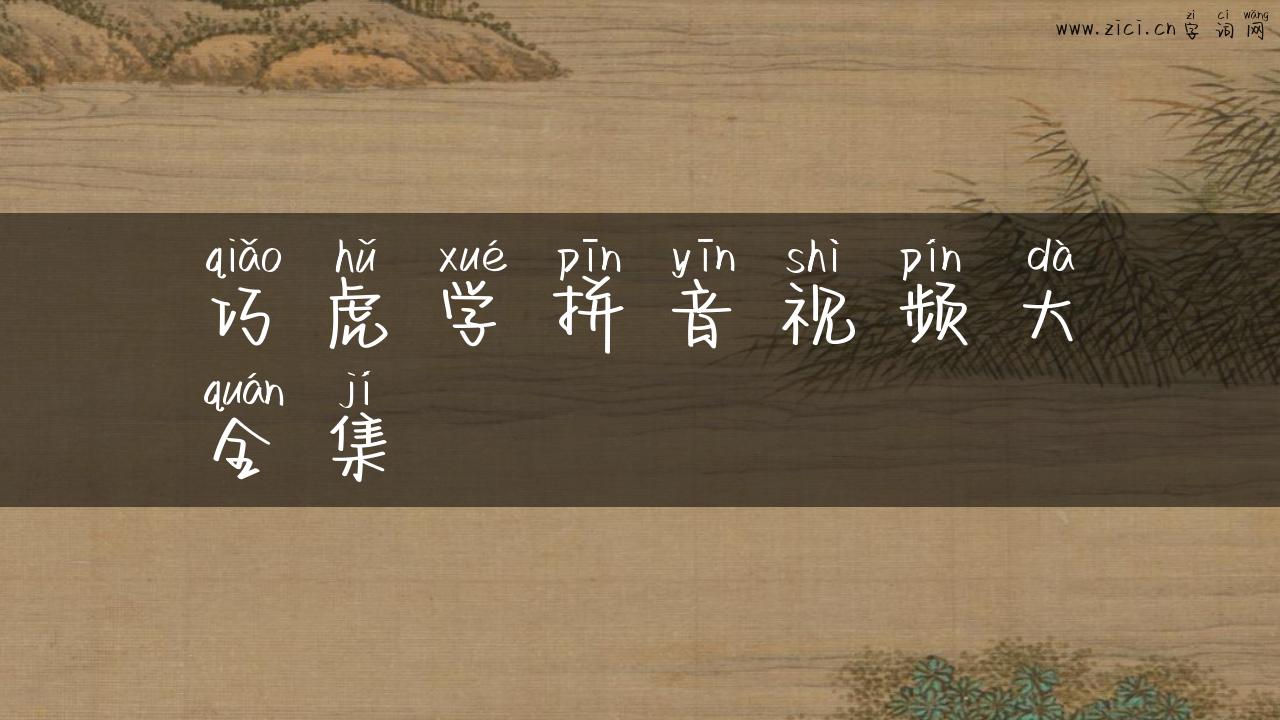 zì cí wǎng
www.zici.cn 字词网
qiǎo hǔ xué pīn yīn shì pín dà
巧虎学拼音视频大
quán jí
全集